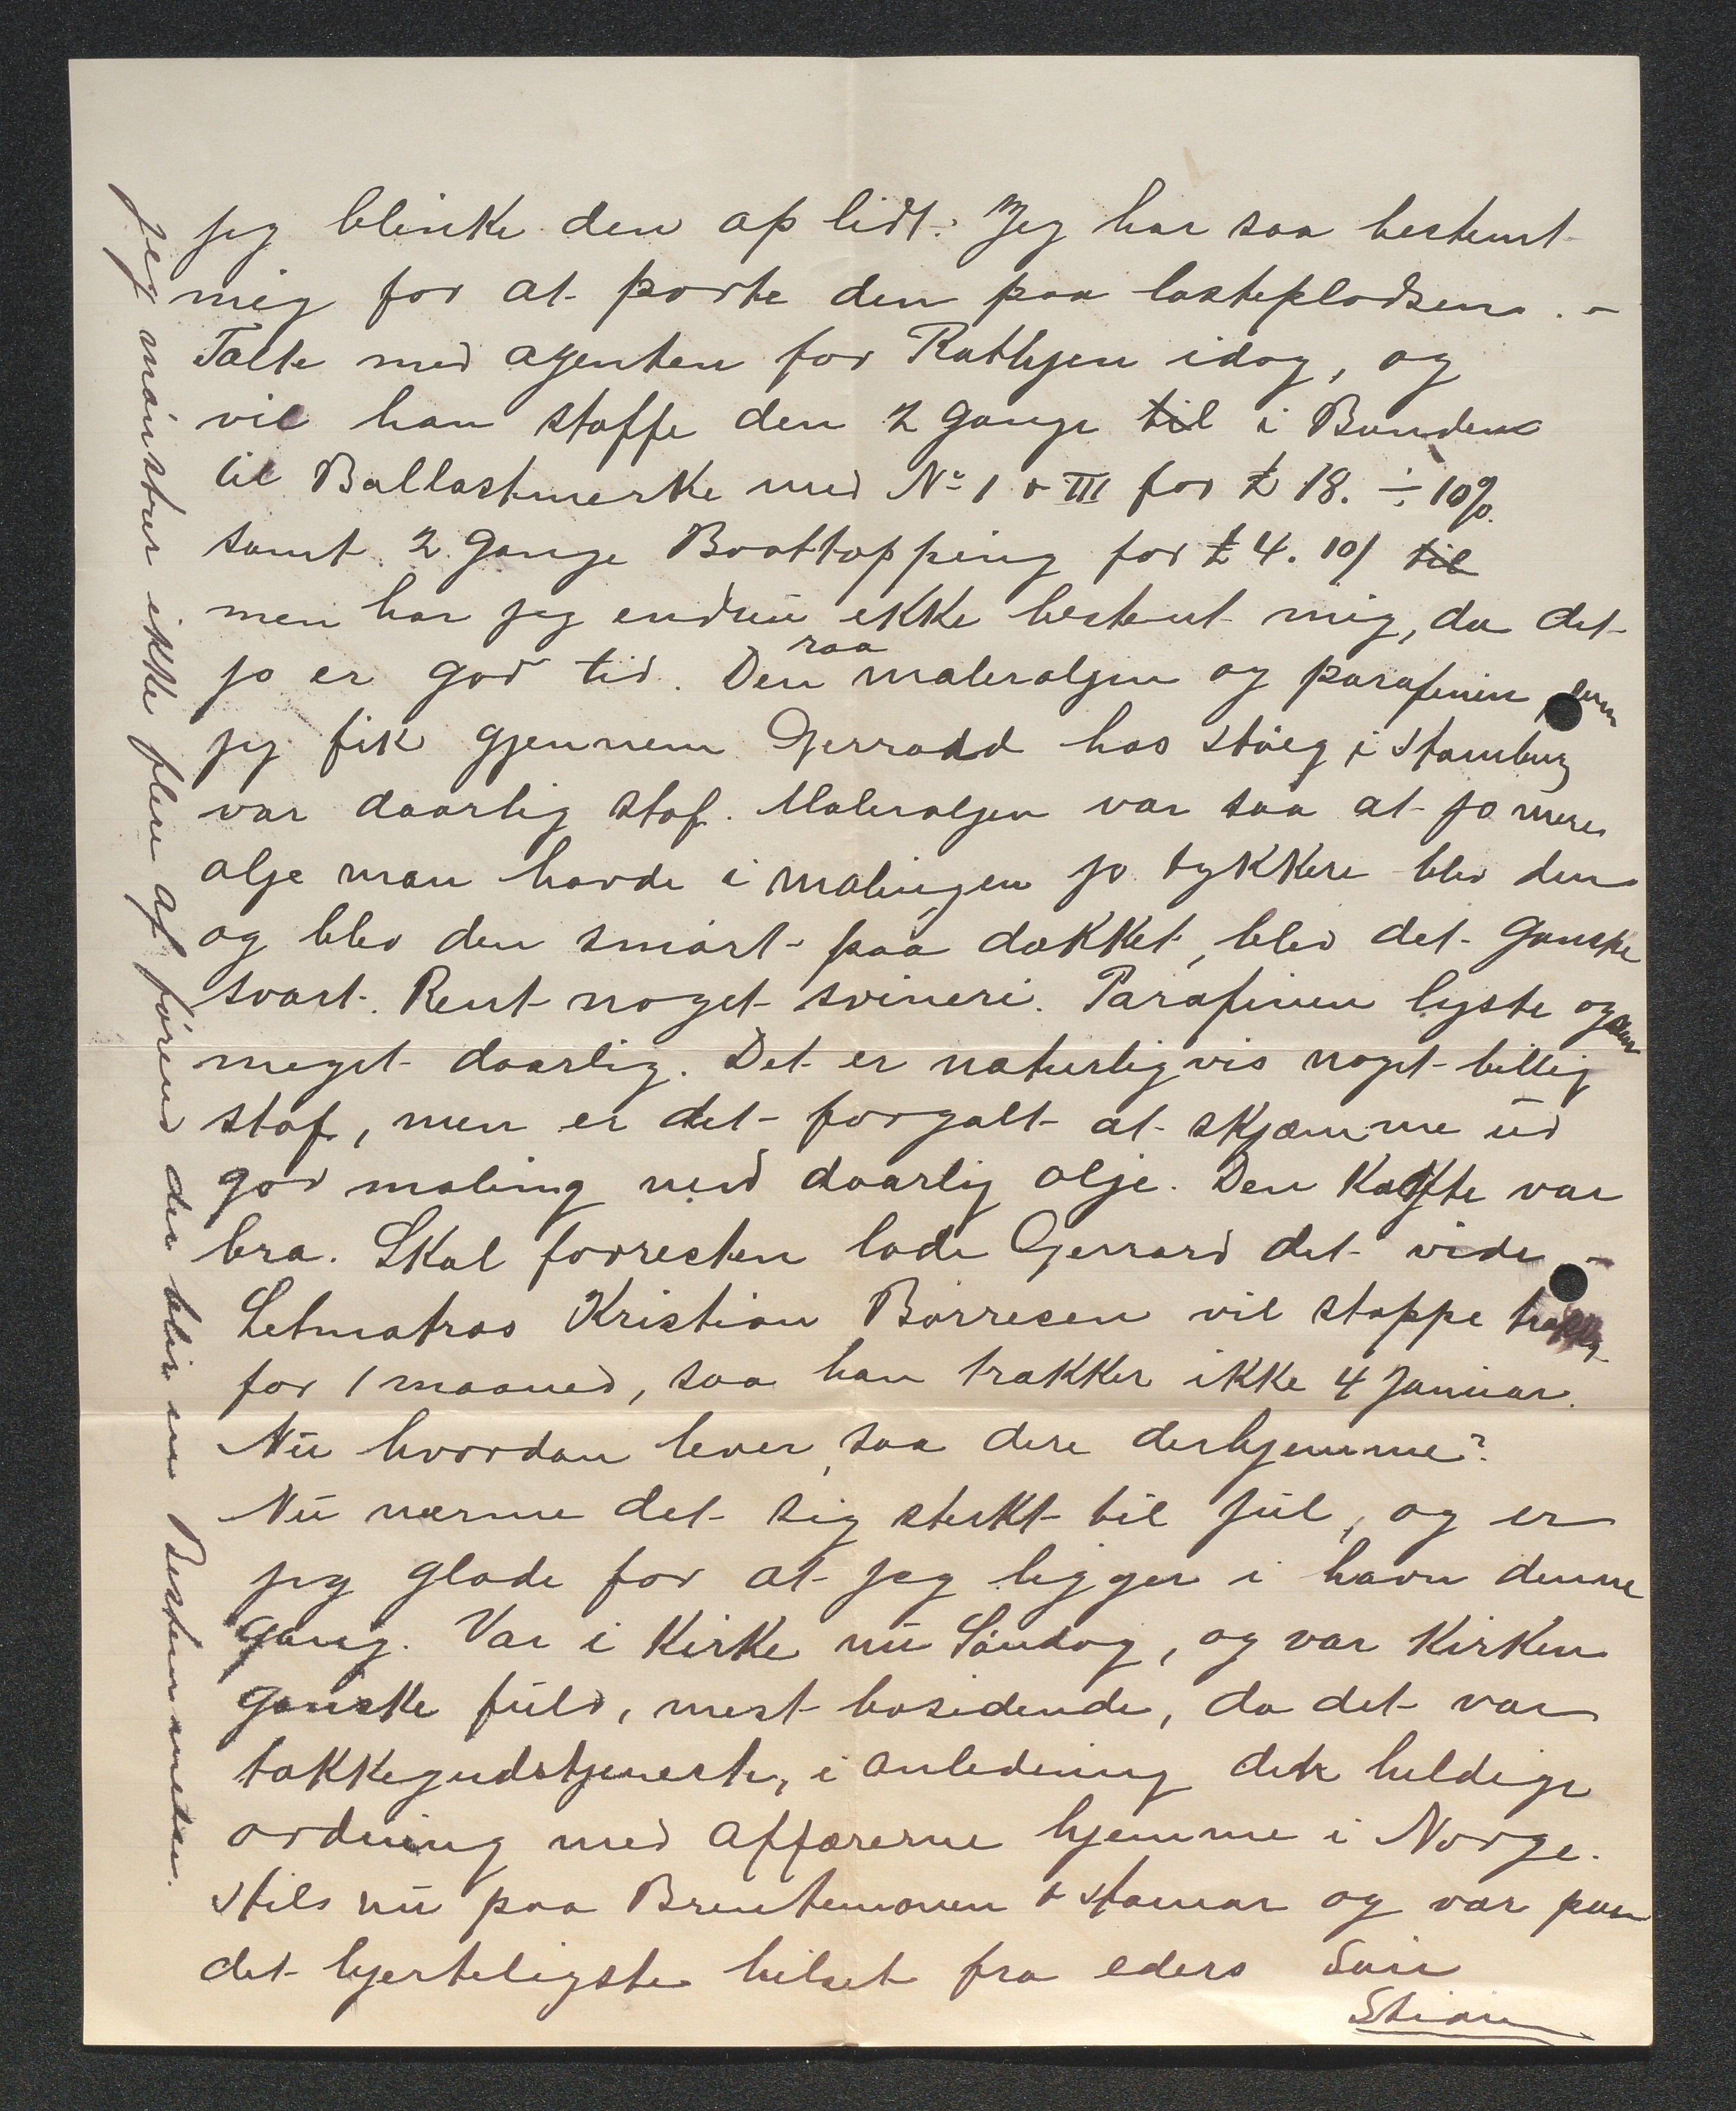 jeg blinke den op lidt. Jeg har saa bestemt
mig for at porte den paa lastepladsen. -
Talte med agenten for Rathjen idag, og
vil han staffe den 2 gange til i Bunden
til Ballastmerke med No 1 & III for £ 18. ÷ 10%
samt 2 gange Boottopping for £ 4. 10/ til
men har jeg endnu ikke bestemt mig, da det
jo er god tid. Den raa maleroljen og parafinen som
jeg fik gjennem Gerradd hos i Hamburg
var daarlig stof. Maleroljen var saa at jo mere
olje man havde i malingen jo tykkere blev den
og blev den smørt paa dækket, blev det ganske
svart. Rent noget svineri. Parafinen lyste ogsaa
meget daarlig. Det er naturligvis noget billig
stof, men er det forgalt at skjæmme ud
god maling med daarlig olje. Den Kogte var
bra. Skal forresten lade Gerrard det vide -
Letmatros Kristian Børresen vil stoppe
for 1 maaned, saa han trækker ikke 4 Januar.
Nu hvordan lever saa dere derhjemme?
Nu nærme det sig sterkt til Jul, og er
jeg glade for at jeg ligger i havn denne
gang. Var i Kirke nu Søndag, og var Kirken
ganske fuld, mest bosidende, da det var
takkegudstjeneste, i anledning den heldige
ordning med affærerne hjemme i Norge.
Hils nu paa & Hamar og vær paa
det hjerteligste hilset fra eders Søn
Stian
Jeg mønstrer ikke flere af førend der blir en Bestemmelse.